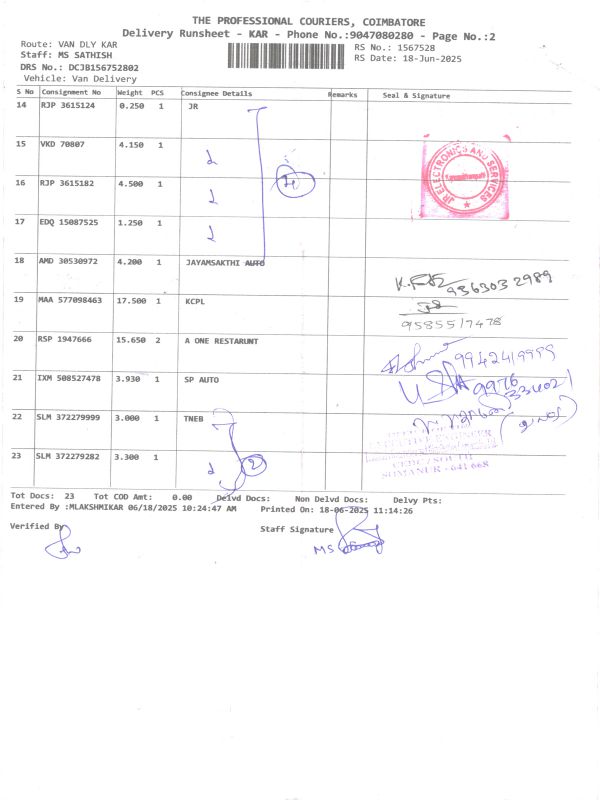 THE PROFESSIONAL COURIERS, COIMBATORE
Delivery Runsheet - KAR - Phone No.:9047080280 - Page No.:2
Route: VAN DLY KAR
Staff: MS SATHISH
DRS No.: DCJB156752802
Vehicle: Van Delivery
RS No.: 1567528
RS Date: 18-Jun-2025
S No Consignment No Weight PCS Consignee Details Remarks Seal & Signature
14 RJP 3615124 0.250 1 JR
15 VKD 70807 4.150 1
16 RJP 3615182 4.500 1
17 EDQ 15087525 1.250 1
JR ELECTRONICS AND SERVICES
18 AMD 30530972 4.200 1 JAYAMSAKTHI AUTO
9363032989
19 MAA 577098463 17.500 1 KCPL
9585517478
20 RSP 1947666 15.650 2 A ONE RESTARUNT
9942419999
21 IXM 508527478 3.930 1 SP AUTO
9976
33402
22 SLM 372279999 3.000 1 TNEB
EXECUTIVE ENGINEER
23 SLM 372279282 3.300 1
2
SOUTH
SOMANUR - 641 668
Tot Docs: 23 Tot COD Amt: 0.00 Delvd Docs: Non Delvd Docs: Delvy Pts:
Entered By :MLAKSHMIKAR 06/18/2025 10:24:47 AM Printed On: 18-06-2025 11:14:26
Verified By
Staff Signature
MS